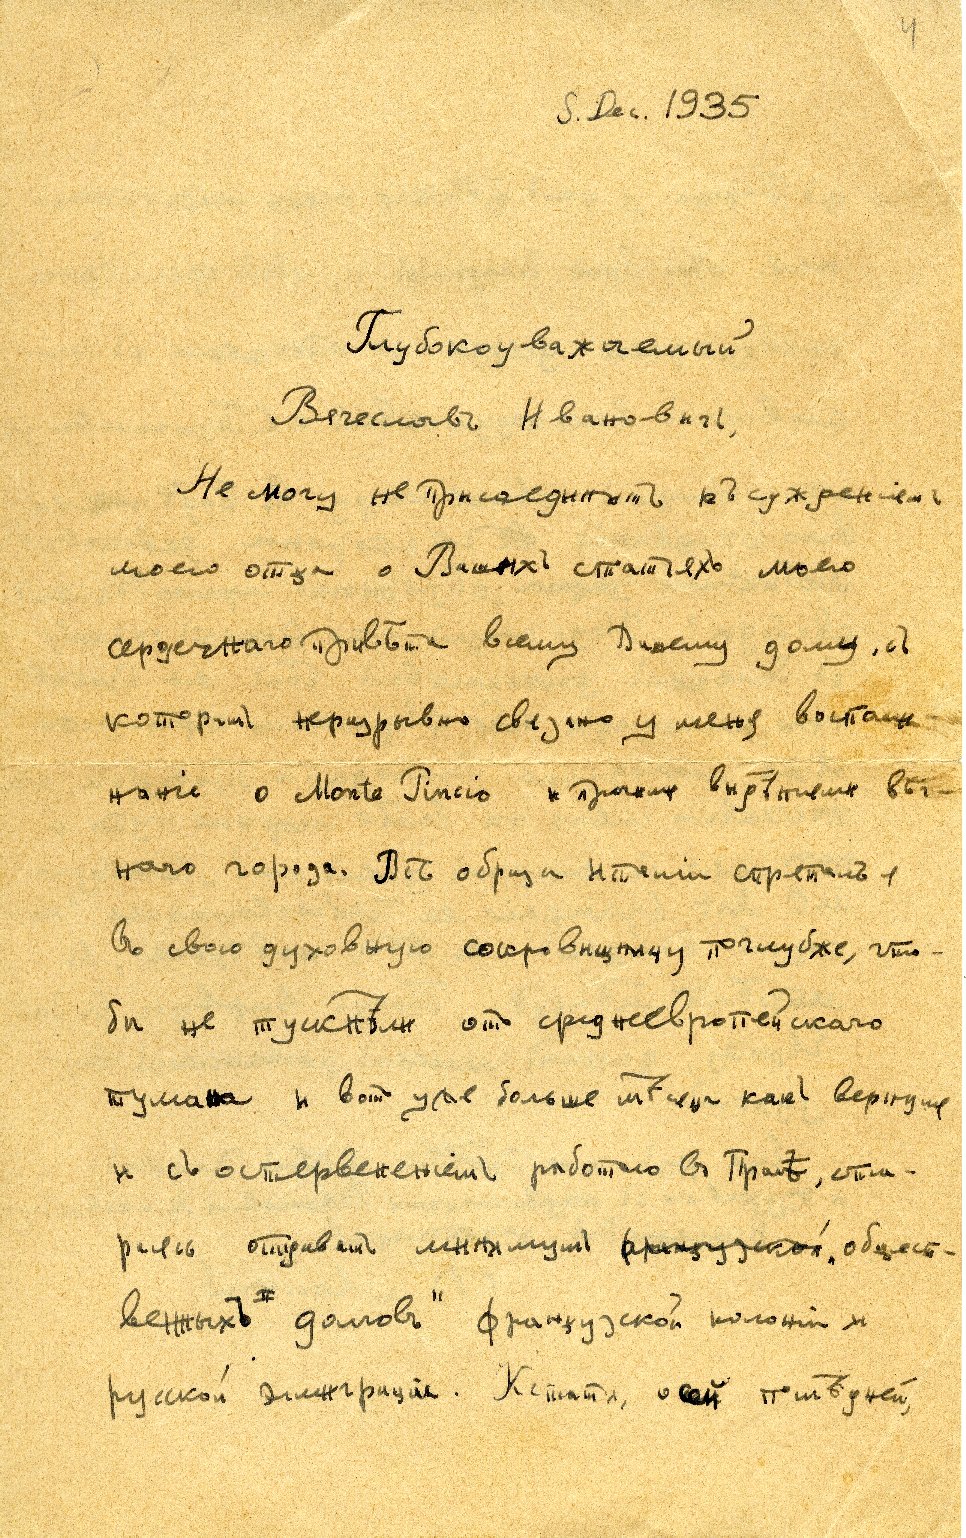 4
5. Dec. 1935
Глубокоуважаемый
Вячеславъ Ивановичъ,
Не могу не присоединить къ сужденіямъ
моего отца о Вашихъ статьяхъ моего
сердечнаго привѣта всему Вашему дому, съ
которымъ неразрывно связано у меня воспоми-
наніе о Monte Pincio и прочими видѣніями вѣч-
наго города. Всѣ образы Италіи спряталъ я
въ свою духовную сокровищницу поглубже, что-
бы не тускнѣли отъ среднеевропейскаго
тумана и вотъ уже больше мѣсяца какъ вернулся
и съ остервененіемъ работаю въ Прагѣ, ста-
раясь отдавать минимумъ французской „общест-
венныхъ" долговъ" французской колоніи и
русской эмиграціи. Кстати, о сей послѣдней,